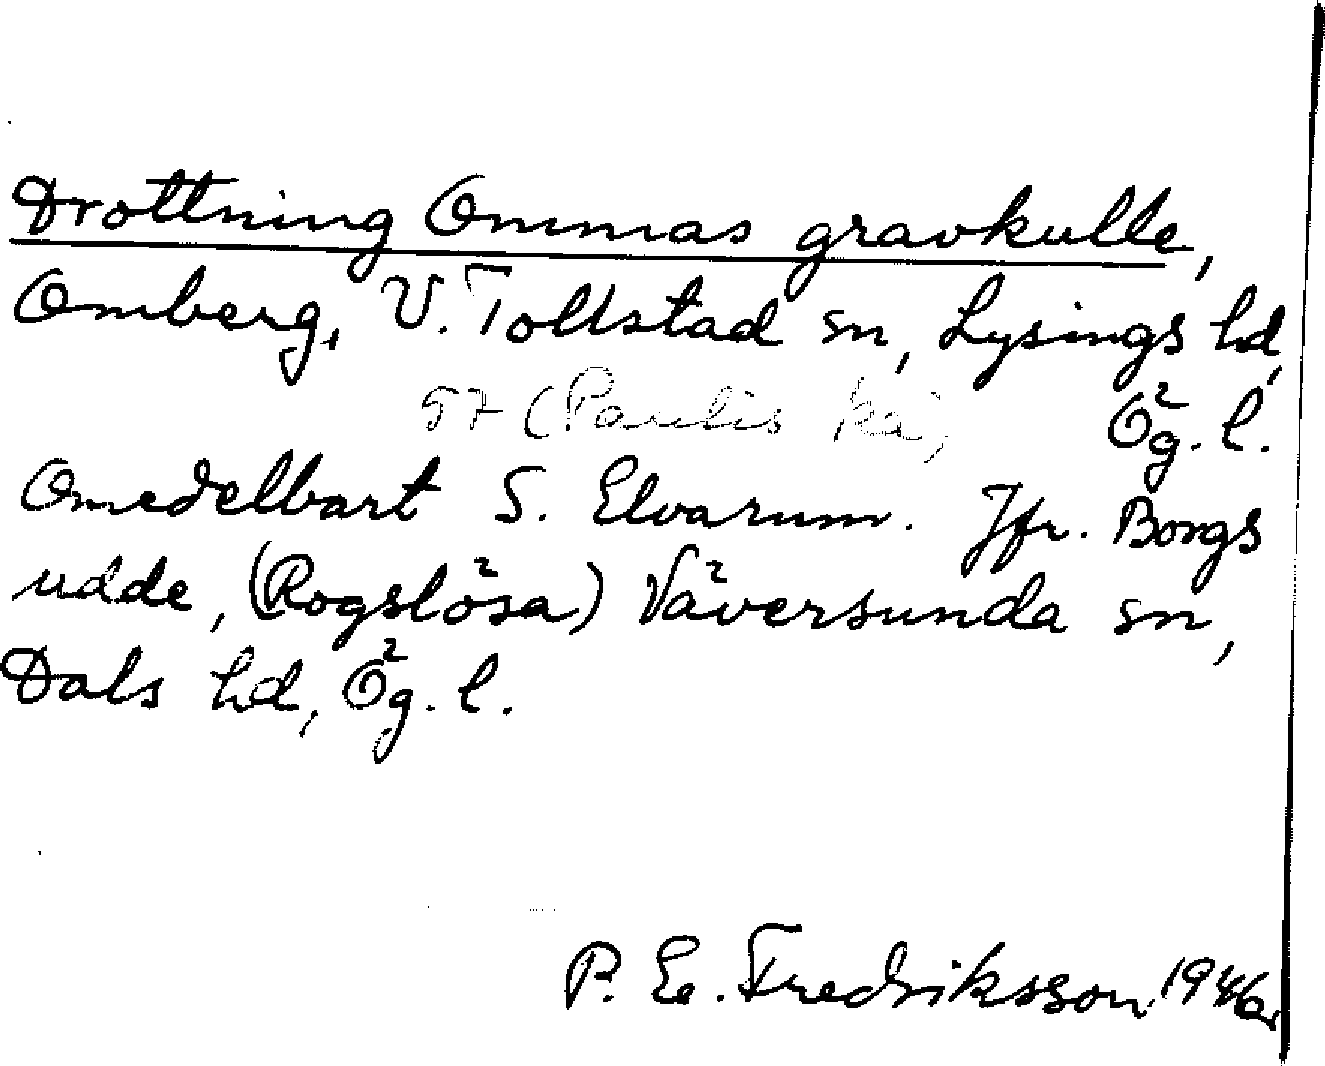 Drottning Ommas gravkulle,
Omberg, V. Tollstad sn, Lysings hd,
57 (Paulis ka) Ög. l.
Omedelbart S. Elvarum. Jfr. Borgs
udde, (Rogslösa) Väversunda sn,
Dals hd, Ög. l.
P. E. Fredriksson 1946.